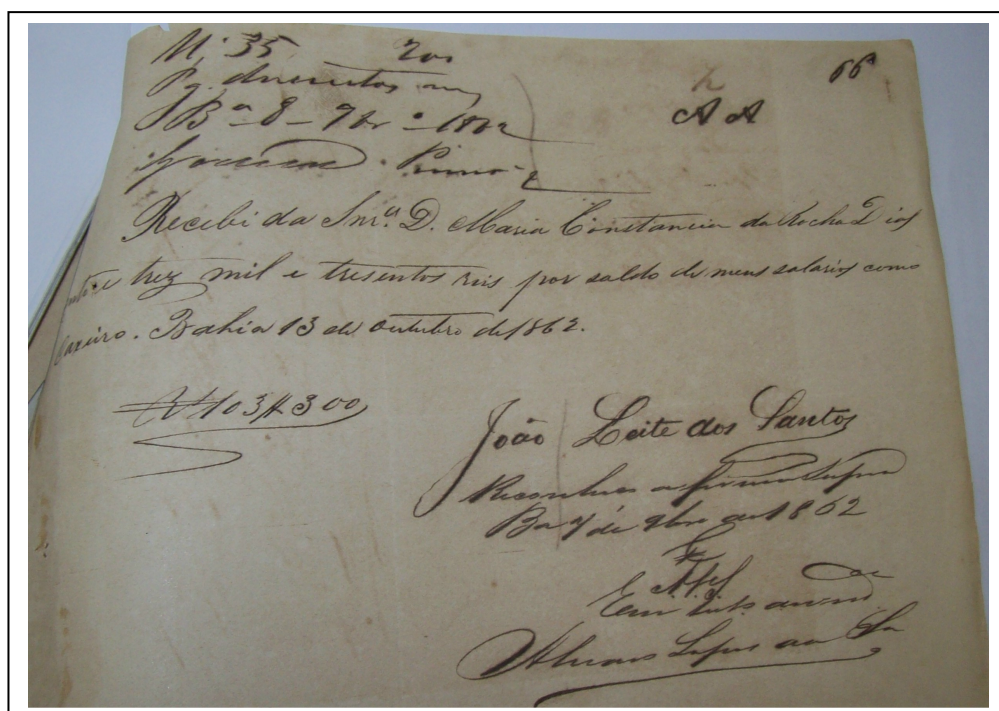 N.º 35 200
Pg. duzentos rs
66
B.ª 8 - 9br.º - 1862
A A
Recebi da Snr.ª D. Maria Constancia da Rocha Dias
cento e trez mil e tresentos reis por saldo de meus salarios como
Caxeiro. Bahia 13 de outubro de 1862.
Rs 103$300
João Leite dos Santos
Reconheço a firma supra
Ba 7 de 9bro de 1862
Em test.º de verd.e
Lopes da